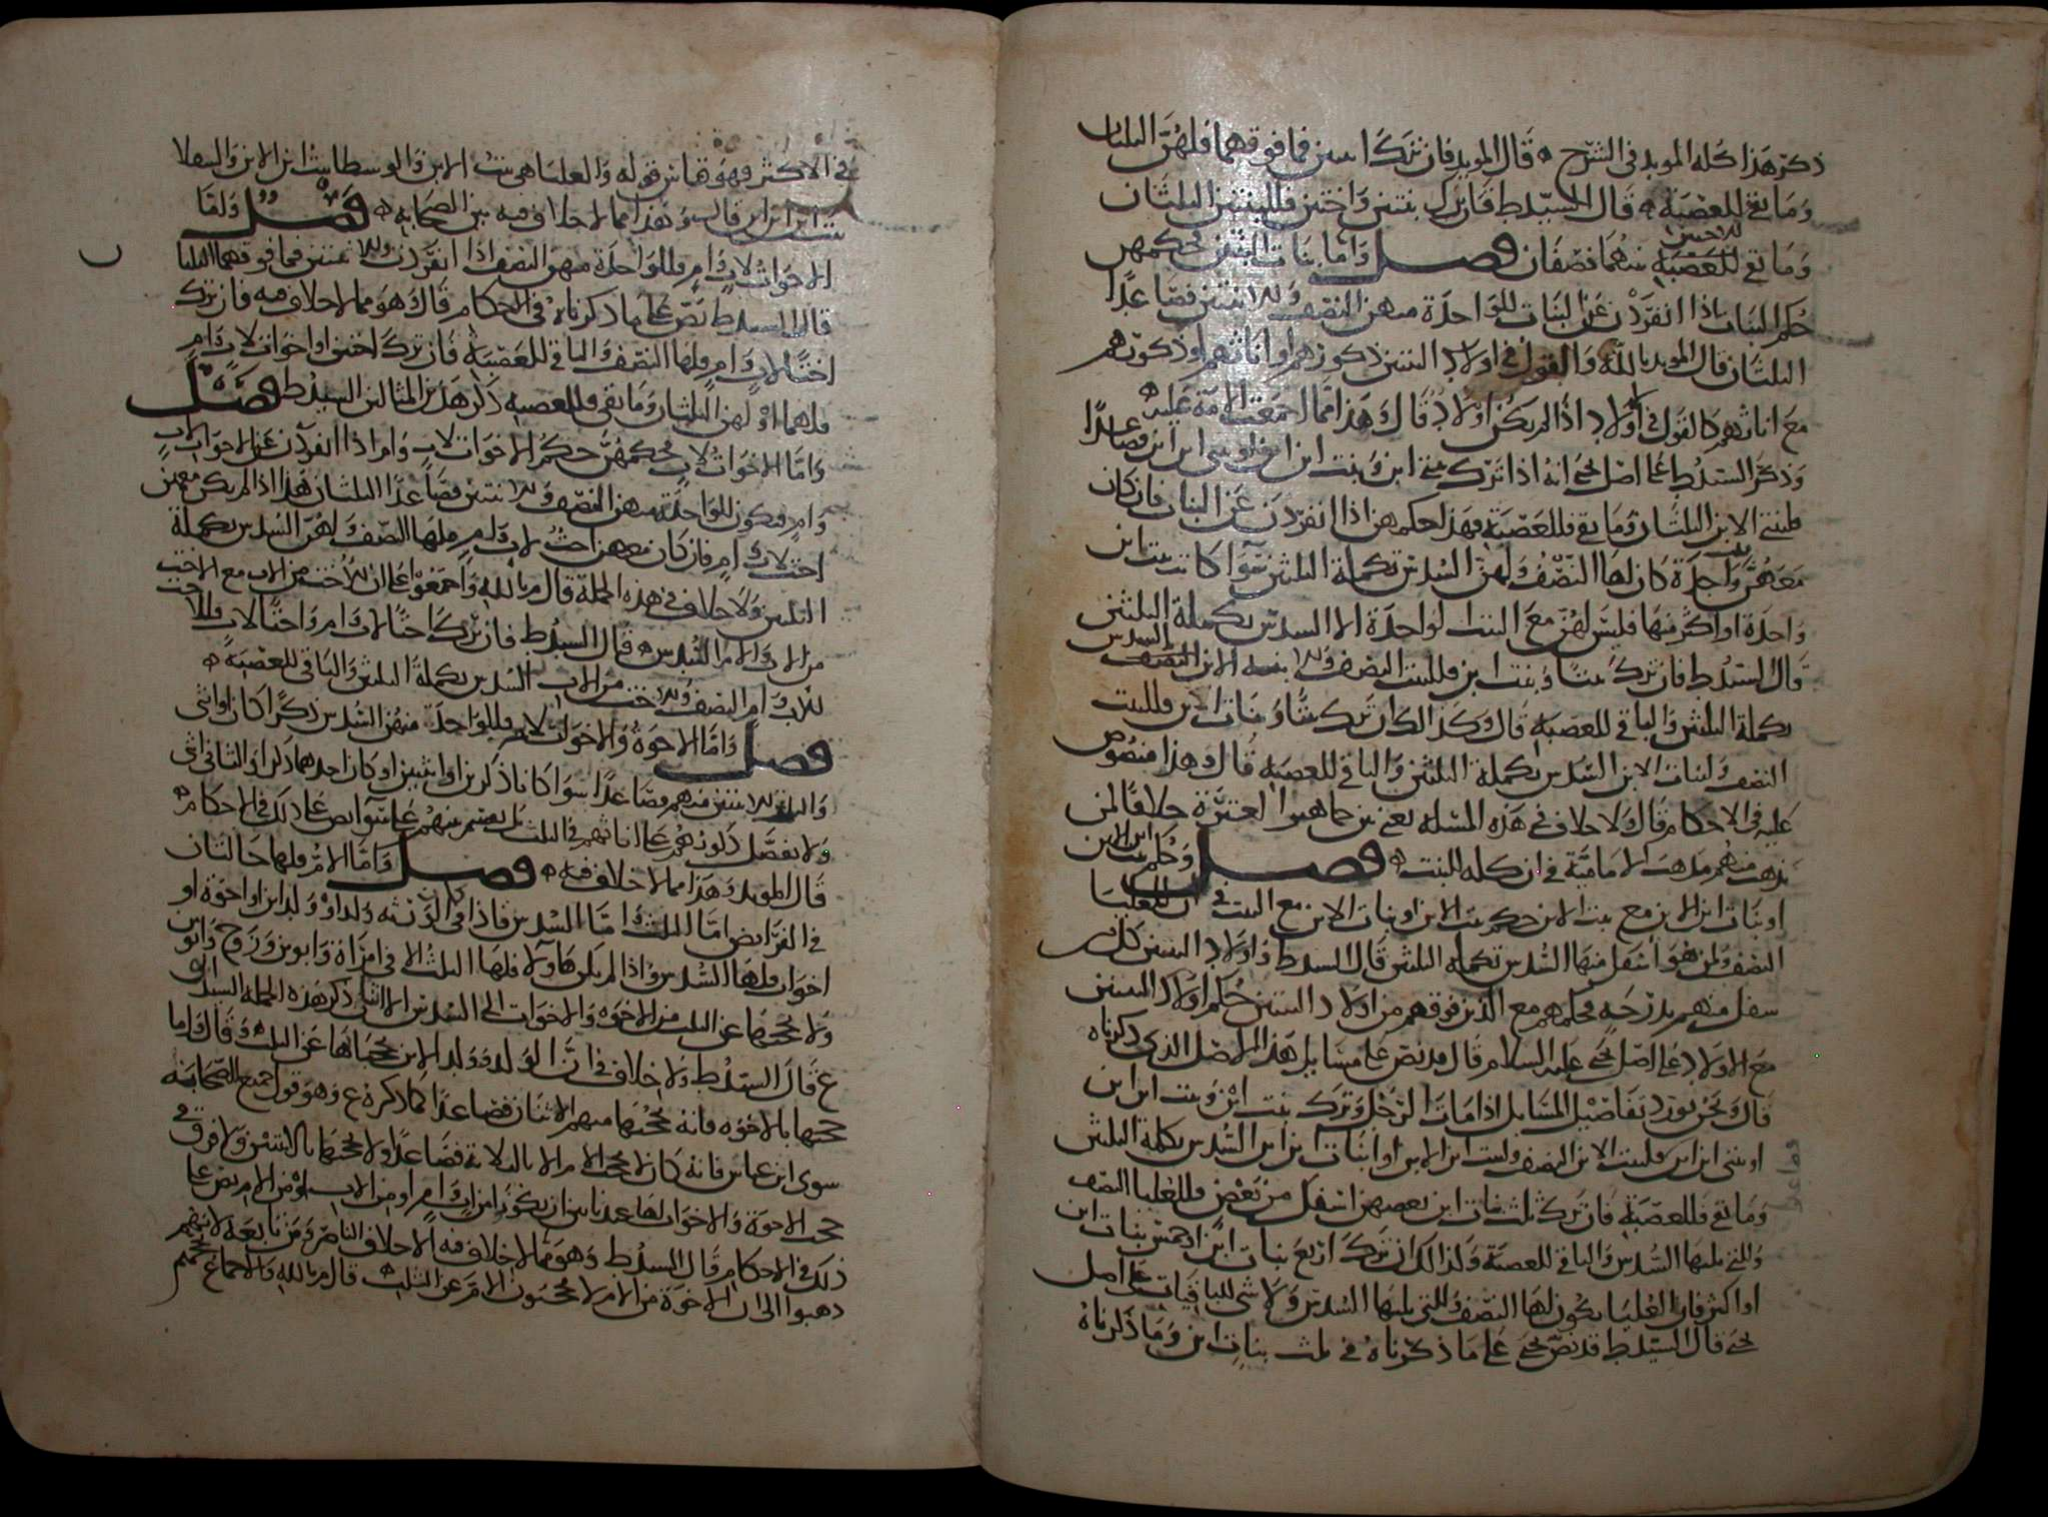 ذكر هذا كله المويد في الشرح قال المويد فان ترك اثنتين فما فوقهما فلهن الثلثان
وما بقي للعصبة قال السيد ط فان ترك بنتين واختين فللبنتين الثلثان
وما بقي للاختين بينهما نصفان فصل واما بنات الابن فحكمهن
حكم البنات اذا انفردن عن البنات للواحدة منهن النصف وللاثنتين فصاعدا
الثلثان قال المويد بالله والقول في اولاد البنين ذكورهم او اناثهم او ذكورهم
مع اناثهم كالقول في اولاد اذا لم يكن اولاد قال وهذا مما اجمعت الامة عليه
وذكر السيد ط على اصل يحيى انه اذا ترك بنتي ابن وبنت ابن ابن او بني ابن ابن فصاعدا
فلبنتي الابن الثلثان وما بقي فللعصبة فهذا حكمهن اذا انفردن عن البنات فان كان
معهن بنت واحدة كان لها النصف ولهن السدس تكملة الثلثين سوا كانت بنت ابن
واحدة او اكثر منها فليس لهن مع البنت الواحدة الا السدس تكملة الثلثين
قال السيد ط فان ترك بنتا وبنت ابن فللبنت النصف ولابنة الابن السدس
تكملة الثلثين والباقي للعصبة قال وكذلك ان ترك بنتا وبنات الابن فللبنت
النصف ولبنات الابن السدس تكملة الثلثين والباقي للعصبة قال وهذا منصوص
عليه في الاحكام قال ولا خلاف في هذه المسلة يعني بين جماهير العترة خلافا لمن
يذهب منهم مذهب الامامية في ان كله للبنت فصل وحكم بنت ابن الابن
او بنات ابن الابن مع بنت الابن حكم بنت الابن او بنات الابن مع البنت في ان للعليا
النصف ولمن هو اسفل منها السدس تكملة الثلثين قال السيد ط واولاد البنين كل من
سفل منهم بدرجة فحكمهم مع الذين فوقهم من اولاد البنين حكم اولاد البنين
مع الاولاد على اصل يحيى عليه السلام قال قد نص على مسايل هذا الاصل الذي ذكرناه
قال ونحن نورد تفاصيل المسايل اذا مات الرجل وترك بنت ابن وبنت ابن ابن
او بنتي ابن ابن فلبنت الابن النصف ولبنت ابن الابن او لبنات ابن ابن السدس تكملة الثلثين
وما بقي فللعصبة فان ترك ثلث بنات ابن بعضهن اسفل من بعض فللعليا النصف
وللتي تليها السدس والباقي للعصبة وكذلك ان ترك اربع بنات ابن او خمس بنات ابن
او اكثر فان العليا يكون لها النصف وللتي تليها السدس ولا شي للباقيات على اصل
يحيى قال السيد ط قد نص يحيى على ما ذكرناه في ثلث بنات ابن وما ذكرناه
في الاكثر فهو قياس قوله والعليا هي بنت الابن والوسطا بنت ابن الابن والسفلا
بنت ابن ابن ابن قال وهذا مما لا خلاف فيه بين الصحابة فصل واما
الاخوات لاب وام فللواحدة منهن النصف اذا انفردت وللاثنتين فما فوقهما الثلثان
قال السيد ط نص على ما ذكرناه في الاحكام قال وهو مما لا خلاف فيه فان ترك
اختا لاب وام فلها النصف والباقي للعصبة فان ترك اختين او اخوات لاب وام
فلهما او لهن الثلثان وما بقي فللعصبة ذكر هذين المثالين السيد ط فصل
واما الاخوات لاب فحكمهن حكم الاخوات لاب وام اذا انفردن عن الاخوات لاب
وام فيكون للواحدة منهن النصف وللاثنتين فصاعدا الثلثان هذا اذا لم يكن معهن
اخت لاب وام فان كان معهن اخت لاب وام فلها النصف ولهن السدس تكملة
الثلثين ولا خلاف في هذه الجملة قال م بالله واجمعوا على ان للاخت من الاب مع الاخت
من الاب والام السدس فقال السيد ط فان ترك اختا لاب وام واختا لاب فللاخت
للاب وام النصف وللاخت من الاب السدس تكملة الثلثين والباقي للعصبة
فصل واما الاخوة والاخوات لام فللواحد منهم السدس ذكرا كان او انثى
والثلث للاثنين منهم فصاعدا سوا كانا ذكرين او انثيين او كان احدهما ذكرا والثاني انثى
ولا يفضل ذكورهم على اناثهم في الثلث بل يقسم بينهم على سوا نص على ذلك في الاحكام
قال المويد وهذا مما لا خلاف فيه فصل واما الام فلها حالتان
في الفرايض اما الثلث واما السدس فاذا كان في الورثة ولد او ولد ابن او اخوة او
اخوات فلها السدس واذا لم يكن هاولا فلها الثلث الا في امراة وابوين وزوج وابوين
ولا يحجبها عن الثلث من الاخوة والاخوات الى السدس الا اثنان ذكر هذه الجملة السيد ابو
ع قال السيد ط ولا خلاف في ان الولد وولد الابن يحجبانها عن الثلث وقال واما
حجبها بالاخوة فانه يحجبها منهم الاثنان فصاعدا كما ذكره ع وهو قول جميع الصحابة
سوى ابن عباس فانه كان لا يحجب الام الا بالثلاثة فصاعدا ولا يحجبها بالاثنين ولا فرق في
حجب الاخوة والاخوات لها عندنا بين ان يكونوا من اب وام او من الاب او من الام نص على
ذلك في الاحكام قال السيد ط وهو مما لا خلاف فيه الا خلاف الناصر ومن تابعه لانهم
ذهبوا الى ان الاخوة من الام لا يحجبون الام عن الثلث قال م بالله والاجماع يحجهم